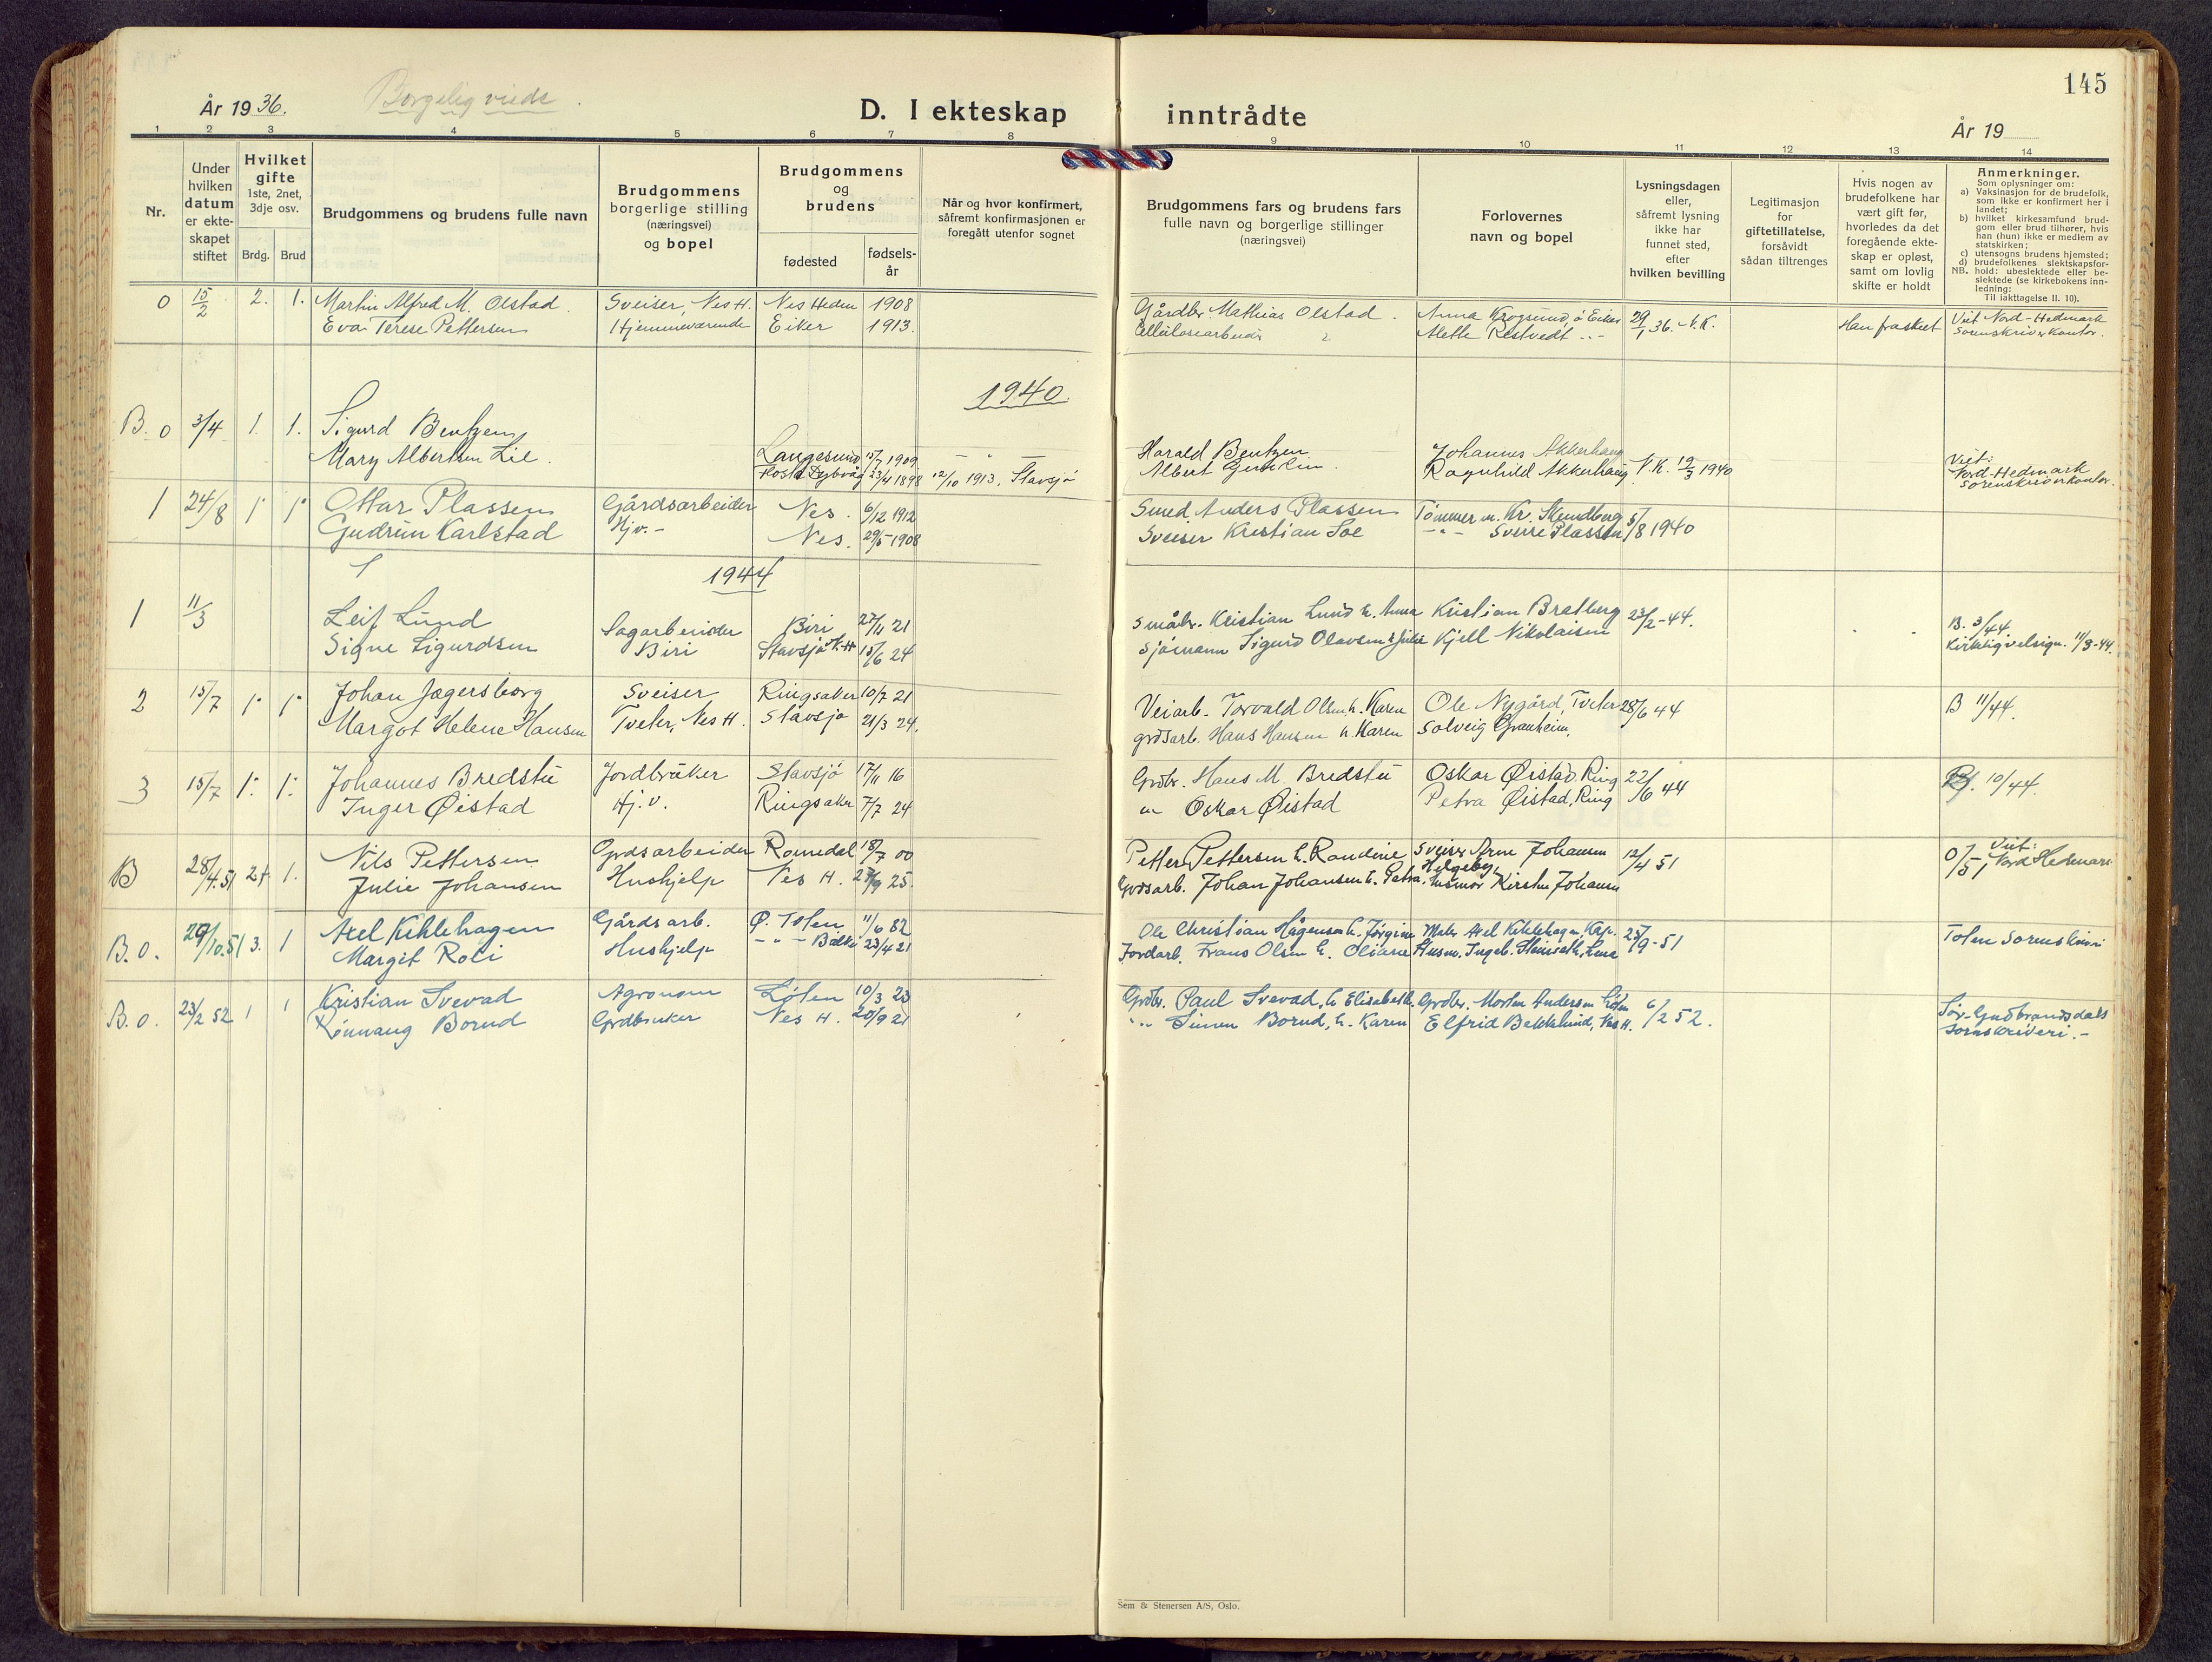 145
År 1936. Borgelig viede.
D. I ekteskap inntrådte
År 19
1 2 3 4 5 6 7 8 9 10 11 12 13 14
Nr.
Under hvilken datum er ekteskapet stiftet
Hvilket gifte
1ste, 2net, 3dje osv.
Brdg. Brud
Brudgommens og brudens fulle navn
Brudgommens borgerlige stilling (næringsvei) og bopel
Brudgommens og brudens
fødested
fødselsår
Når og hvor konfirmert, såfremt konfirmasjonen er foregått utenfor sognet
Brudgommens fars og brudens fars fulle navn og borgerlige stillinger (næringsvei)
Forlovernes navn og bopel
Lysningsdagen eller, såfremt lysning ikke har funnet sted, efter hvilken bevilling
Legitimasjon for giftetillatelse, forsåvidt sådan tiltrenges
Hvis nogen av brudefolkene har vært gift før, hvorledes da det foregående ekteskap er opløst, samt om lovlig skifte er holdt
Anmerkninger.
Som oplysninger om:
a) Vaksinasjon for de brudefolk, som ikke er konfirmert her i landet;
b) hvilket kirkesamfund brudgom eller brud tilhører, hvis han (hun) ikke er medlem av statskirken;
c) utensogns brudens hjemsted;
d) brudefolkenes slektskapsforhold: ubeslektede eller beslektede (se kirkebokens innledning:
NB. Til iakttagelse II. 10).
0 15/2 2. 1. Martin Alfred M. Olstad. Sveiser, Nes H. Nes Hedm 1908 Gårdbr. Mathias Olstad. Anna Krogsund, ö Eiker 29/1 36. V.K. Han fraskelt Viet Nord-Hedmark
Eva Terese Pettersen Hjemmeværende Eiker 1913. Cellulosearbeider Mette Restvedt Sorenskriverkontor.
1940.
B. 0 3/4 1. 1. Sigurd Bentzen Langesund 15/7 1909 Harald Bentzen Johannes Akkerhaug V.K. 19/3 1940 Viet:
Mary Albertsen Lie. 23/4 1898 12/10 1913. Stavsjø Albert Ragnhild Akkerhaug Nord-Hedmark Sorenskriverkontor.
1 24/8 1. 1. Ottar Plassen Gårdsarbeider Nes. 6/12 1912 Smed Anders Plassen Tømmerm. Kr. Skundberg 5/8 1940
Gudrun Karlstad Hjv. Nes. 29/5 1908 Sveiser Kristian Soe -"- Sverre Plassen
1944
1 11/3 Leif Lund Sagarbeider Biri 27/11 21 Småbr. Kristian Lund h. Anna Kristian Bratberg 23/2-44. B. 3/44
Signe Sigurdsen Biri Stavsjø N.H 15/6 24 Sjømann Sigurd Olavsen h Julie Kjell Nikolaisen Kirkelig velsign. 11/3-44.
2 15/7 1. 1. Johan Jægersborg Sveiser Ringsaker 10/7 21 Veiarb. Torvald Olsen h. Karen Ole Nygård, Tveter 28/6 44 B 11/44.
Margot Helene Hansen Tveter, Nes H. Stavsjø 21/3 24. grdsarb. Hans Hansen h. Karen Solveig Granheim.
3 15/7 1. 1. Johannes Bredstu Jordbruker Stavsjø 17/11 16 Grdbr. Hans M. Bredstu Oskar Øistad, Ring 22/6 44 10/44.
Inger Øistad Hj.v. Ringsaker 7/7 24 " Oskar Øistad Petra Øistad, Ring
B 28/4.51 2 1. Nils Pettersen Grdsarbeider Romedal 18/7 00 Petter Pettersen h. Randine Sveiser Arne Johansen Helgeby 12/4 51 0/51 Viet: Nord Hedmark
Julie Johansen Hushjelp Nes H. 25. Grdsarb. Johan Johansen h. Petra. husmor Kirsten Johansen
B.0. 29/10.51 3. 1 Axel Kihlehagen Gårdsarb. Ø. Toten 11/6 82 Ole Christian Hågensen h. Jørgine Maler Axel Kihlehagen, Kap. 25/9-51 Toten Sorenskriveri
Margit Roli Hushjelp -"- Balke 23/4 21 Jordarb. Frans Olsen h. Oliane Husm. Ingeb. Lena
B.0. 23/2 52 1 1 Kristian Svevad Agronom Løten 10/3 23 Grdbr. Paul Svevad, h Elisabeth. Grdbr. Morten Andersen Løten 6/2 52. Sør-Gudbrandsdals
Rønnaug Borud Grdbruker Nes H. 20/9 21 -"- Simen Borud, h. Karen Elfrid Bakkelund, Nes H. sorenskriveri.-
Sem & Stenersen A/S, Oslo.